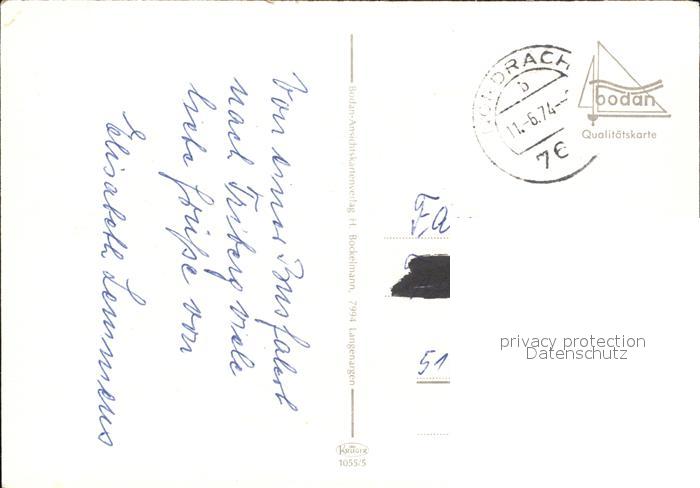 Von einer Busfahrt
nach Triberg viele
liebe Grüße von
Elisabeth Lemmens
Bodan-Ansichtskartenverlag H. Bockelmann, 7994 Langenargen
KRÜGER
1055/5
DRACH
b
11.-6.74.-
76
bodan
Qualitätskarte
Fa
51
privacy protection
Datenschutz